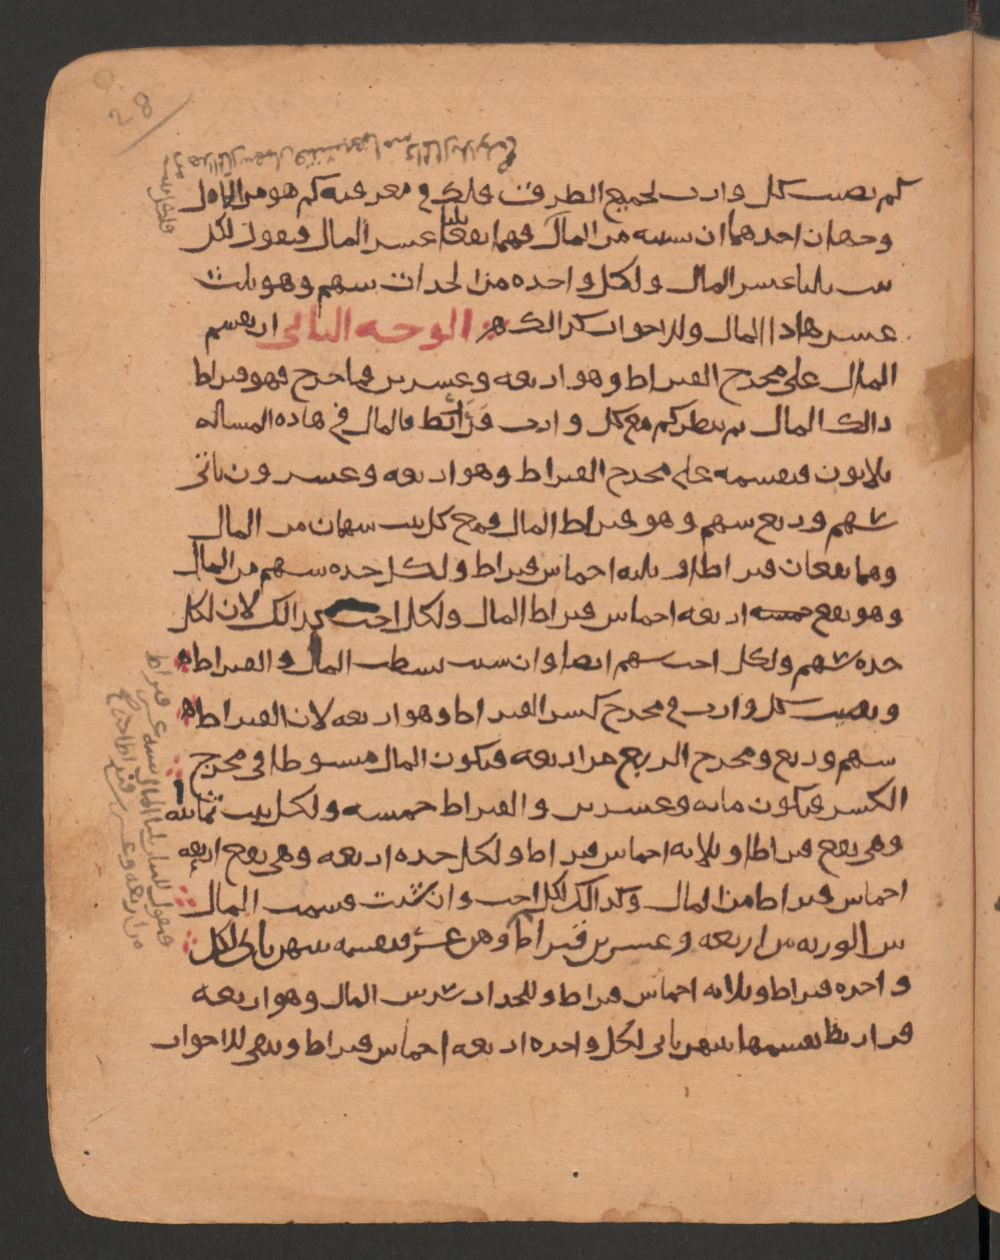 كم نصيب كل وارث لجميع الطرفين فلك في معرفة كم هو من المال
وجهان احدهما ان تنسبه من المال فهما يقعا ثلثا عشر المال فيقول لكل
بنت ثلثا عشر المال ولكل واحده من الجدات سهم وهو ثلث
عشر هاذا المال وللاخوات كذالك الوجه الثاني ان تقسم
المال على مخرج القيراط وهو اربعه وعشرين فما خرج فهو قيراط
ذالك المال ثم تنظر كم مع كل وارث قراريط فالمال في هاذه المساله
ثلاثون فتقسمه على مخرج القيراط وهو اربعه وعشرون ياتي
سهم وربع سهم وهو قيراط المال فمع كل بنت سهمان من المال
وهما يقعان قيراطا وثلاثه اخماس قيراط ولكل جده سهم من المال
وهو يقع خمسه اربعه اخماس قيراط المال ولكل اخت كذالك لان لكل
جده سهم ولكل اخت سهم ايضا وان شيت بسطت المال والقيراط
ونصيب كل وارث في مخرج كسر القيراط وهو اربعه لان القيراط
سهم وربع ومخرج الربع من اربعه فيكون المال مبسوطا في مخرج
الكسر فيكون مايه وعشرين والقيراط خمسه ولكل بنت ثمانيه
وهي يقع قيراطا وثلاثه اخماس قيراط ولكل جده اربعه وهي يقع اربعه
اخماس قيراط من المال وكذالك لكل اخت وان شيت قسمت المال
بين الورثه من اربعه وعشرين قيراطا وهن عشر فتقسمه بينهن ياتي لكل
واحده قيراط وثلاثه اخماس قيراط وللجدات سدس المال وهو اربعه
قراريط تقسمها بينهن ياتي لكل واحده اربعه اخماس قيراط وبقي للاخوات
فيقول للبنات ثلثا المال سته عشر قيراط
من اربعه وعشرين قيراطا